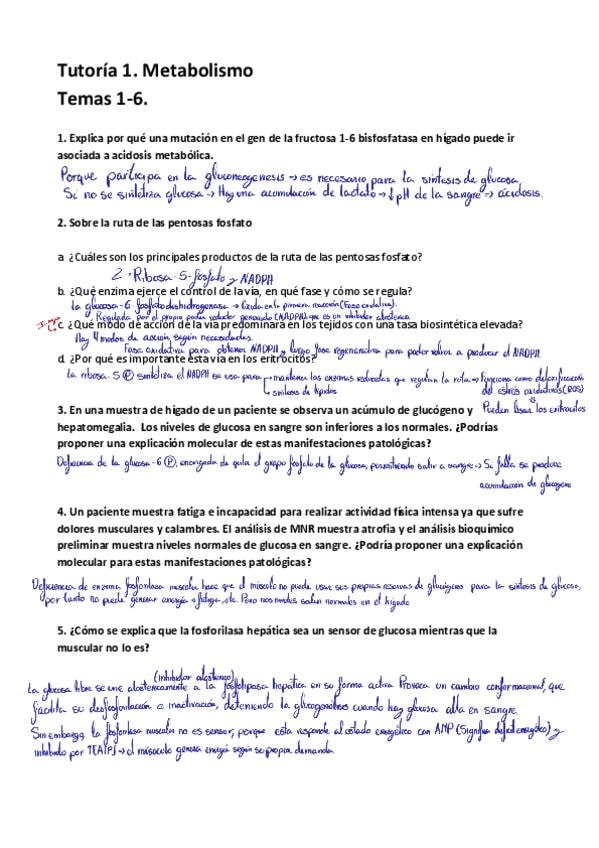 Tutoría 1. Metabolismo
Temas 1-6.
1. Explica por qué una mutación en el gen de la fructosa 1-6 bisfosfatasa en hígado puede ir
asociada a acidosis metabólica.
Porque participa en la gluconeogenesis → es necesario para la síntesis de glucosa.
Si no se sintetiza glucosa → Hay una acumulación de lactato → ↓ pH de la sangre → acidosis.
2. Sobre la ruta de las pentosas fosfato
a ¿Cuáles son los principales productos de la ruta de las pentosas fosfato?
Ribosa-5-fosfato y NADPH
b. ¿Qué enzima ejerce el control de la vía, en qué fase y cómo se regula?
La glucosa-6 fosfato deshidrogenasa → Cataliza la primera reacción (Fase oxidativa).
Regulada por el propio poder reductor generado (NADPH) que es un inhibidor alosterico
c. ¿Qué modo de acción de la vía predominará en los tejidos con una tasa biosintética elevada?
Hay 4 modos de acción según necesidades.
Fase oxidativa para obtener NADPH y luego fase regenerativa para poder volver a producir el NADPH.
d. ¿Por qué es importante esta vía en los eritrocitos?
La ribosa-5 Ⓟ sintetiza el NADPH se usa para → mantener las enzimas reducidas que regulan la ruta → Funciona como detoxificación
→ síntesis de lípidos
del estrés oxidativo (ROS)
Pueden lisar los eritrocitos
3. En una muestra de hígado de un paciente se observa un acúmulo de glucógeno y
hepatomegalia. Los niveles de glucosa en sangre son inferiores a los normales. ¿Podrías
proponer una explicación molecular de estas manifestaciones patológicas?
Deficiencia de la glucosa-6 Ⓟ, encargada de quitar el grupo fosfato de la glucosa, permitiendo salir a sangre → Si falla se produce
acumulación de glucógeno
4. Un paciente muestra fatiga e incapacidad para realizar actividad física intensa ya que sufre
dolores musculares y calambres. El análisis de MNR muestra atrofia y el análisis bioquímico
preliminar muestra niveles normales de glucosa en sangre. ¿Podría proponer una explicación
molecular para estas manifestaciones patológicas?
Deficiencia de enzima fosforilasa muscular hace que el músculo no puede usar sus propias reservas de glucógeno para la síntesis de glucosa,
por tanto no puede generar energía → fatiga, etc. Pero niveles salen normales en el hígado
5. ¿Cómo se explica que la fosforilasa hepática sea un sensor de glucosa mientras que la
muscular no lo es?
(Inhibidor alosterico)
La glucosa libre se une alostericamente a la fosforilasa hepática en su forma activa Provoca un cambio conformacional, que
facilita su desfosforilación e inactivación, deteniendo la glucogenólisis cuando hay glucosa alta en sangre.
Sin embargo, la fosforilasa muscular no es sensor, porque esta responde al estado energético con AMP (Significa déficit energético) y
inhibida por ↑[ATP] → el músculo genera energía según su propia demanda.